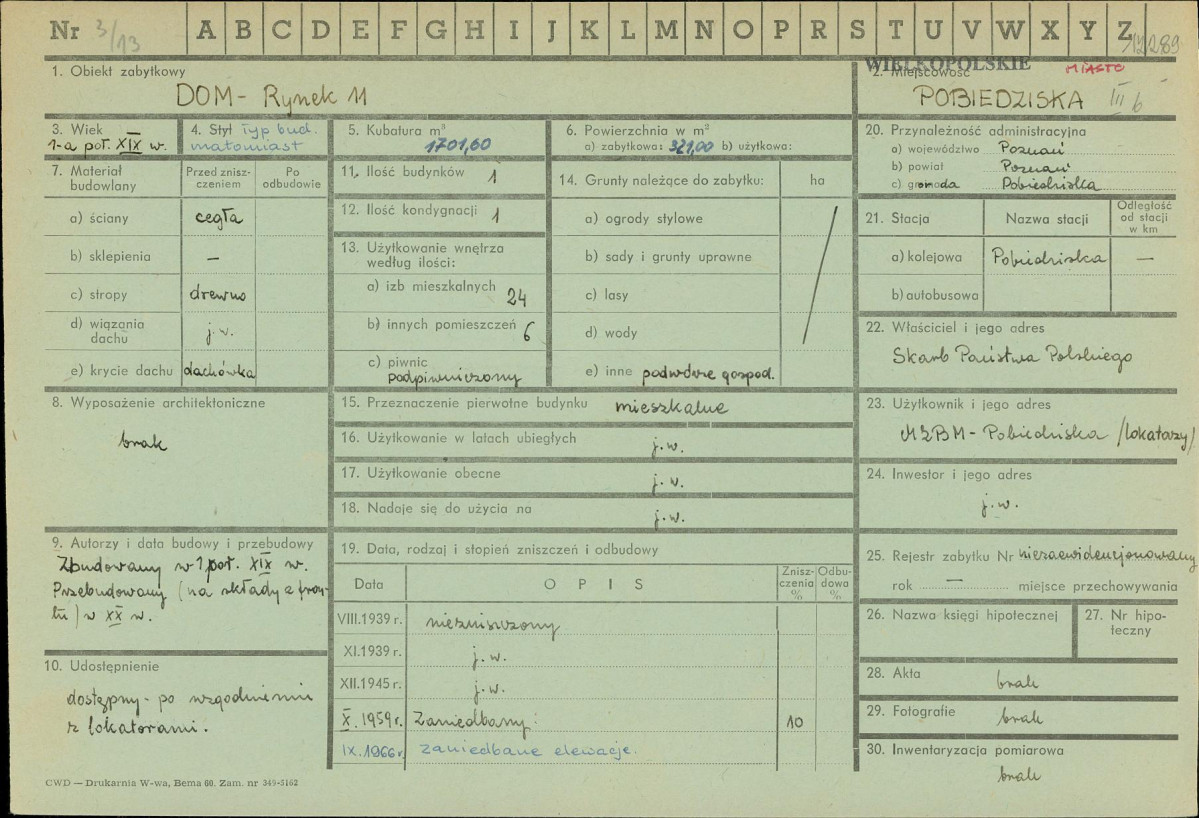 Nr 3/13 A B C D E F G H I J K L M N O P R S T U V W X Y Z 12289
WIELKOPOLSKIE MIASTO
1. Obiekt zabytkowy
DOM - Rynek 11
2. Miejscowość
POBIEDZISKA III b
3. Wiek
1-a poł. XIX w.
4. Styl typ bud.
małomiast
5. Kubatura m³
1701,60
6. Powierzchnia w m²
a) zabytkowa: 321,00 b) użytkowa:
7. Materiał budowlany
Przed zniszczeniem
Po odbudowie
a) ściany cegła
b) sklepienia —
c) stropy drewno
d) wiązania dachu j.w.
e) krycie dachu dachówka
11. Ilość budynków 1
12. Ilość kondygnacji 1
13. Użytkowanie wnętrza
według ilości:
a) izb mieszkalnych 24
b) innych pomieszczeń 6
c) piwnic
podpiwniczony
14. Grunty należące do zabytku: ha
a) ogrody stylowe
b) sady i grunty uprawne
c) lasy
d) wody
e) inne podwórze gospod.
20. Przynależność administracyjna
a) województwo Poznań
b) powiat Poznań
c) gromada Pobiedziska
21. Stacja Nazwa stacji Odległość od stacji w km
a) kolejowa Pobiedziska —
b) autobusowa
22. Właściciel i jego adres
Skarb Państwa Polskiego
8. Wyposażenie architektoniczne
brak
15. Przeznaczenie pierwotne budynku mieszkalne
16. Użytkowanie w latach ubiegłych j.w.
17. Użytkowanie obecne j.w.
18. Nadaje się do użycia na j.w.
23. Użytkownik i jego adres
MZBM - Pobiedziska /lokatorzy/
24. Inwestor i jego adres
j.w.
9. Autorzy i data budowy i przebudowy
Zbudowany w 1 poł. XIX w.
Przebudowany (na składy z fron-
tu) w XX w.
10. Udostępnienie
dostępny - po uzgodnieniu
z lokatorami.
19. Data, rodzaj i stopień zniszczeń i odbudowy
Data OPIS Zniszczenia % Odbudowa %
VIII.1939 r. niezniszczony
XI.1939 r. j.w.
XII.1945 r. j.w.
X.1959 r. Zaniedbany: 10
IX.1966 r. zaniedbane elewacje.
25. Rejestr zabytku Nr niezaewidencjonowany
rok — miejsce przechowywania
26. Nazwa księgi hipotecznej
27. Nr hipo-
teczny
28. Akta
brak
29. Fotografie
brak
30. Inwentaryzacja pomiarowa
brak
CWD — Drukarnia W-wa, Bema 60. Zam. nr 349-5162